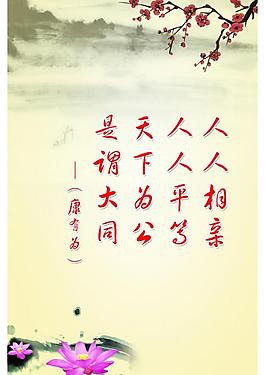 人人相亲
人人平等
天下为公
是谓大同
—（康有为）